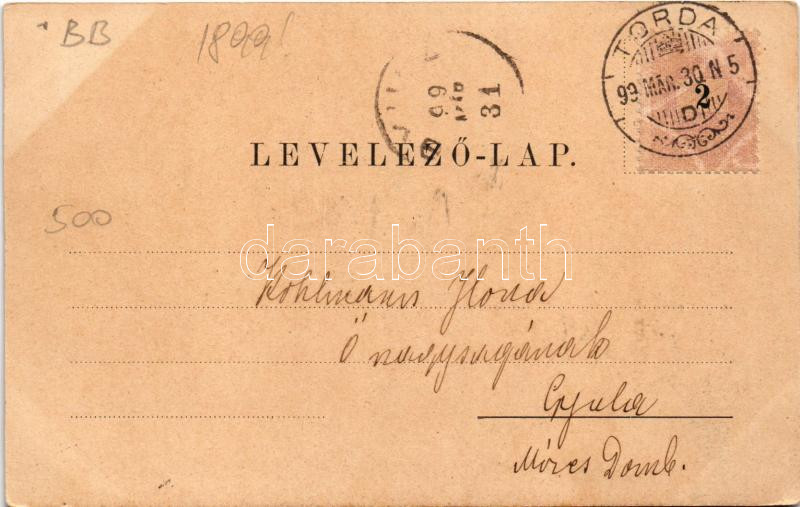 BB
1899!
TORDA
99 MÁR. 30 N 5
D1
2
99
MÁR
31
LEVELEZŐ-LAP.
500
darabanth
Kohlmann Ilona
Ő nagyságának
Gyula